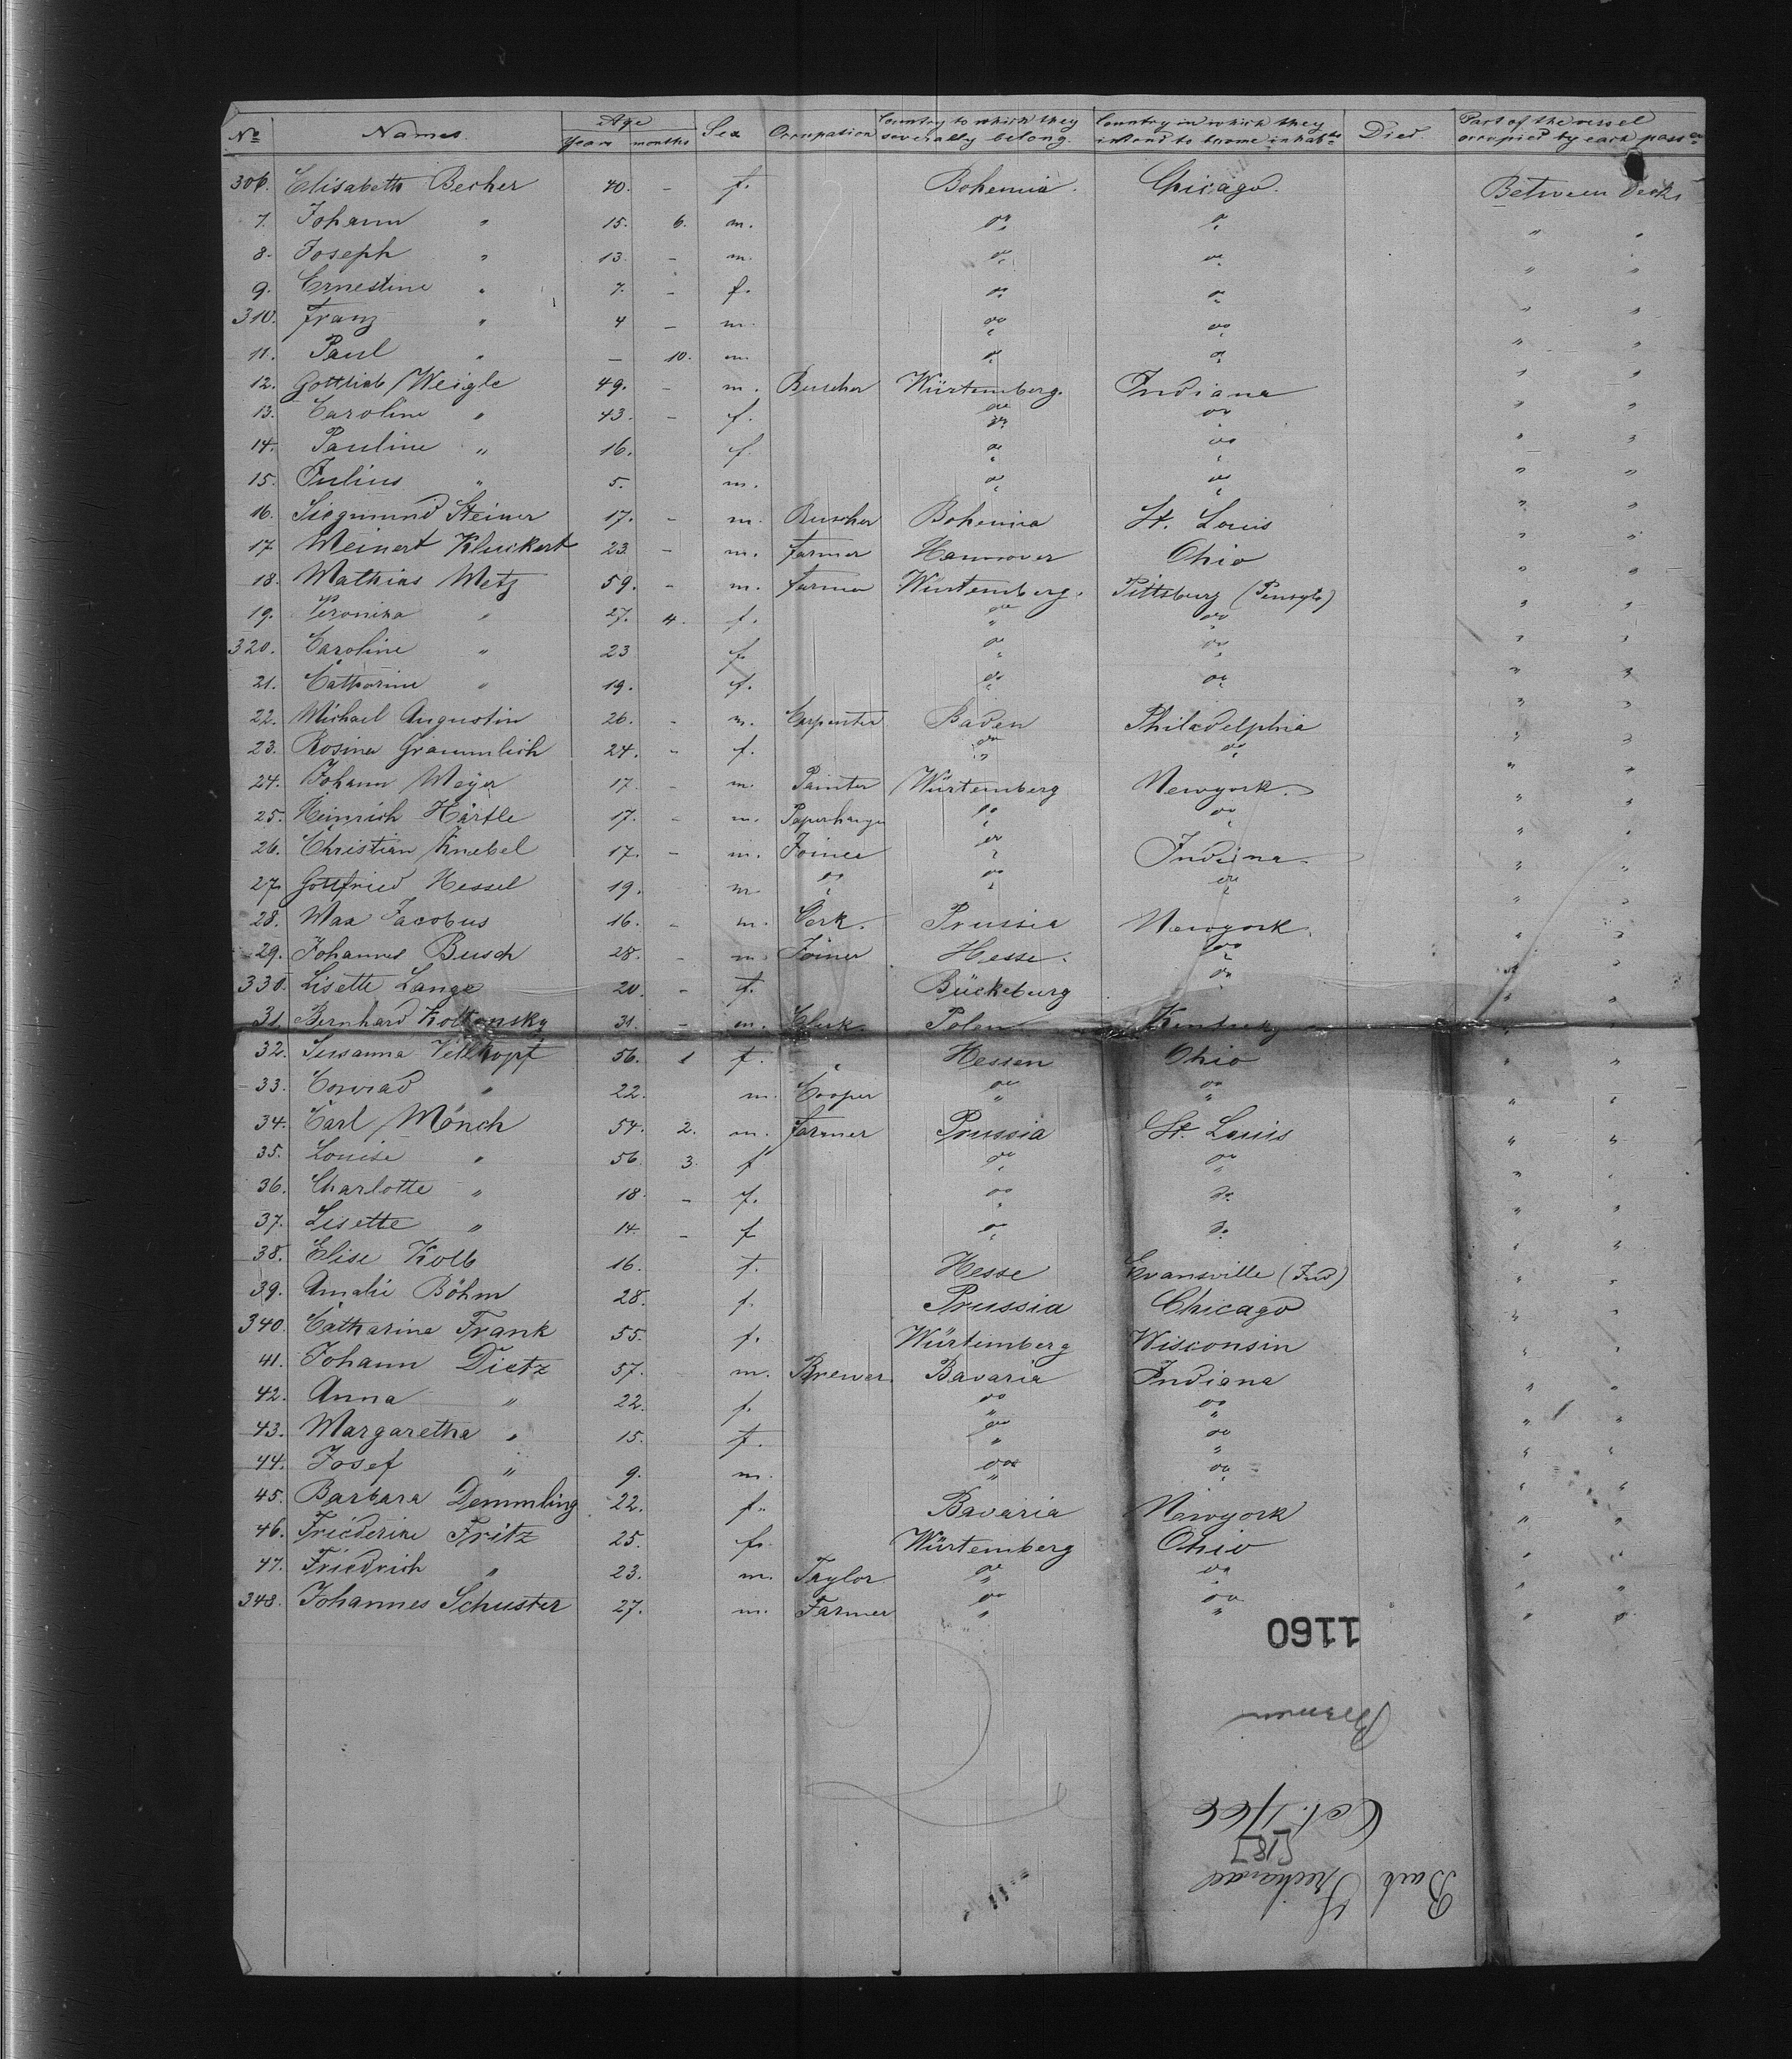 No. Names. Age Years months Sex Occupation Country to which they severally belong. Country in which they intend to become inhabts Died. Part of the vessel occupied by each passr
306. Elisabeth Becher 40. - f. Bohemia. Chicago. Between decks
7. Johann " 15. 6. m. do do " "
8. Joseph " 13. - m. do do " "
9. Ernestine " 7. - f. do do " "
310. Franz " 4 - m. do do " "
11. Paul " - 10. m. do do " "
12. Gottlieb Weigle 49. - m. Buscher Würtemberg. Indiana " "
13. Caroline " 43. - f. do do " "
14. Pauline " 16. f. do do " "
15. Julius " 5. m. do do " "
16. Siegmund Steiner 17. - m. Buscher Bohemia St. Louis " "
17. Meinert Kluckert 23. - m. Farmer Hannover Ohio " "
18. Mathias Metz 59. - m. Farmer Würtemberg. Pittsburg (Pensylv) " "
19. Veronika " 27. 4. f. do do " "
320. Caroline " 23 f. do do " "
21. Catharine " 19. f. do do " "
22. Michael Augustin 26. - m. Carpenter Baden Philadelphia " "
23. Rosina Grammlich 24. - f. do do " "
24. Johann Meyer 17. - m. Painter Würtemberg Newyork. " "
25. Heinrich Härtle 17. - m. Paperhanger do do " "
26. Christian Knebel 17. - m. Joiner do Indiana. " "
27. Gottfried Hessel 19. m. do do do " "
28. Max Jacobus 16. - m. Clerk. Prussia Newyork. " "
29. Johannes Busch 28. - m. Joiner Hesse. do " "
330. Lisette Lange 20. - f. Bückeburg do " "
31. Bernhard 31. - m. Clerk Polen Kentucky " "
32. Sussanna Vellkopf 56. 1 f. Hessen Ohio " "
33. Conrad " 22. m. Cooper do do " "
34. Carl Mönch 54. 2. m. Farmer Prussia St. Louis " "
35. Louise " 56. 3. f do do " "
36. Charlotte " 18. - f. do do " "
37. Lisette " 14. - f do do " "
38. Elise Kolb 16. f. Hesse Evansville (Ind) " "
39. Amalie Böhm 28. f. Prussia Chicago " "
340. Catharine Frank 55. f. Würtemberg Wisconsin " "
41. Johann Dietz 57. m. Brewer Bavaria Indiana " "
42. Anna " 22. f. do do " "
43. Margaretha " 15. f. do do " "
44. Josef " 9. m. do do " "
45. Barbara Demmling 22. f. Bavaria Newyork " "
46. Friederike Fritz 25. f. Würtemberg Ohio " "
47. Friedrich " 23. m. Taylor do do " "
348. Johannes Schuster 27. m. Farmer do do " "
1160
Bremen
Oct. 1/66
Bark